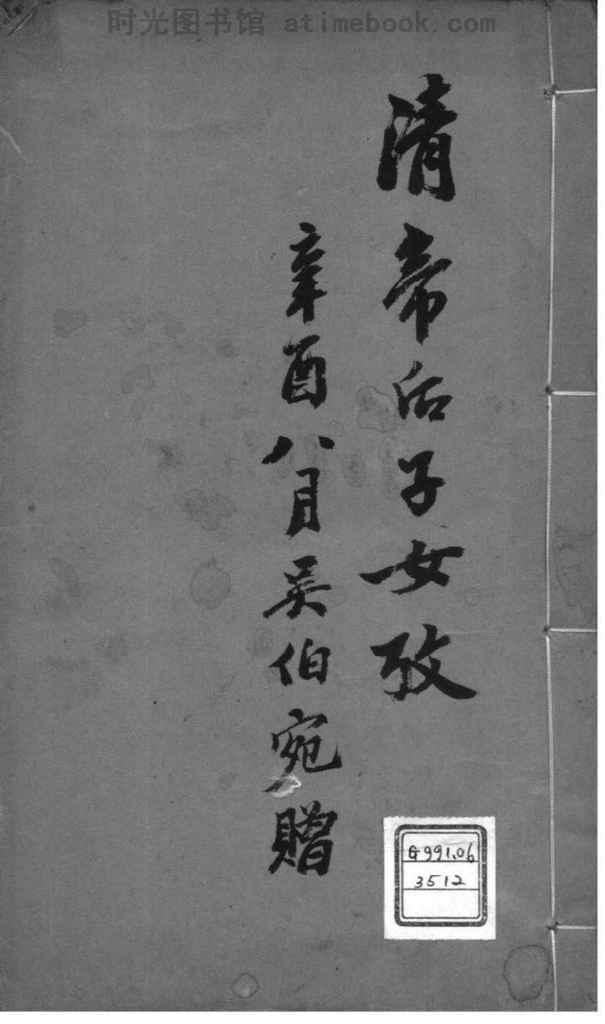 时光图书馆 atimebook.com
清帝后子女攷
辛酉八月吴伯宛贈
G991.06
3512